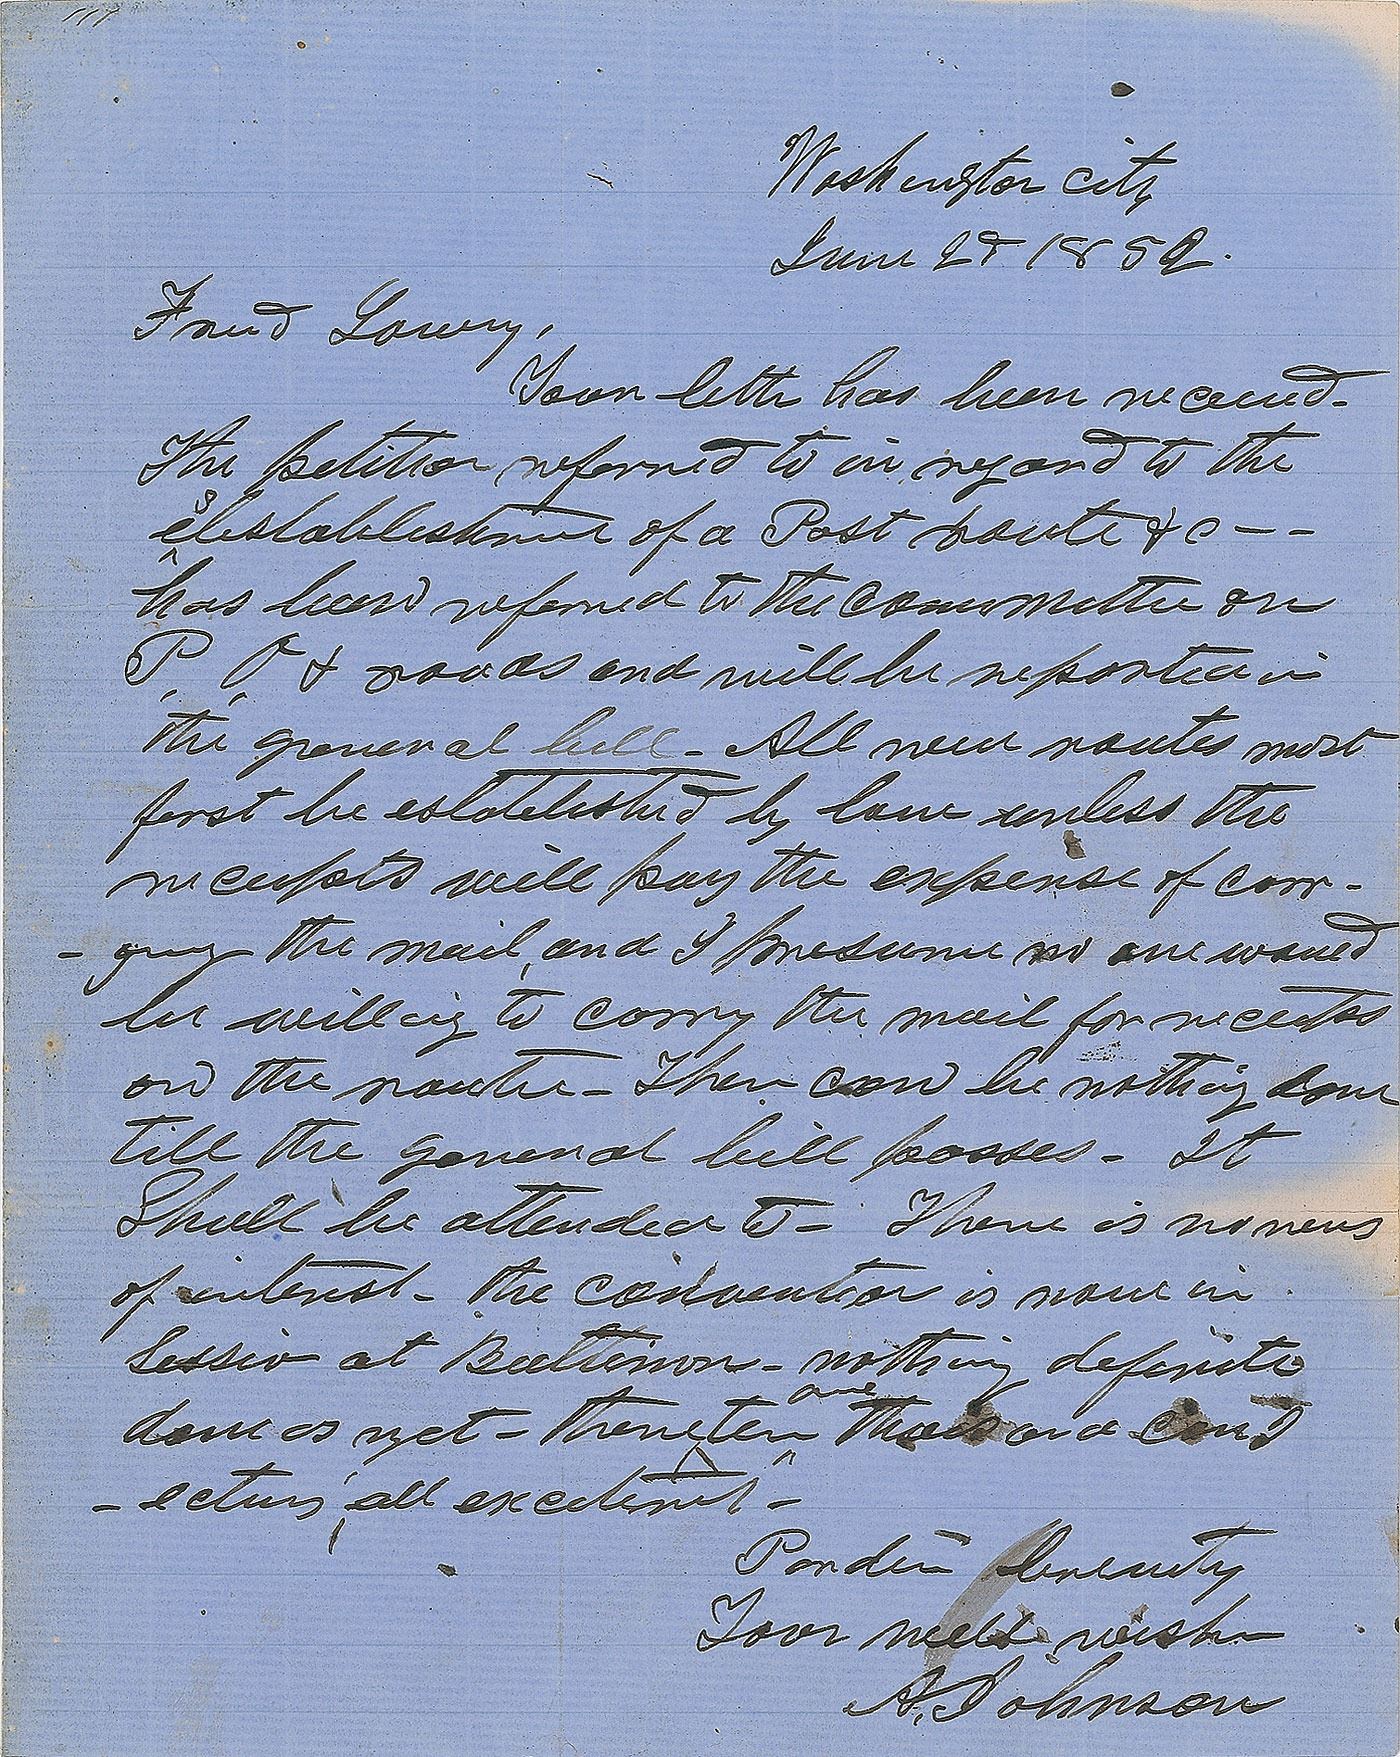 Washington city
June 2d 1852.
Friend Lowry,
Your letter has been received.
The petition referred to in regard to the
establishment of a Post route &c--
has been referred to the committee on
P. O. & roads and will be reported in
the general bill - All new routes must
first be established by law unless the
receipts will pay the expense of carr-
-ying the mail, and I presume no one would
be willing to carry the mail for receipts
on the route - There can be nothing done
till the general bill passes - It
Shall be attended to - There is no news
of interest - the convention is now in
Session at Baltimore - nothing definite
done as yet - there, are ten thousand
-ecturs, all excitement" -
Pardon brevity
Your well wisher
A. Johnson